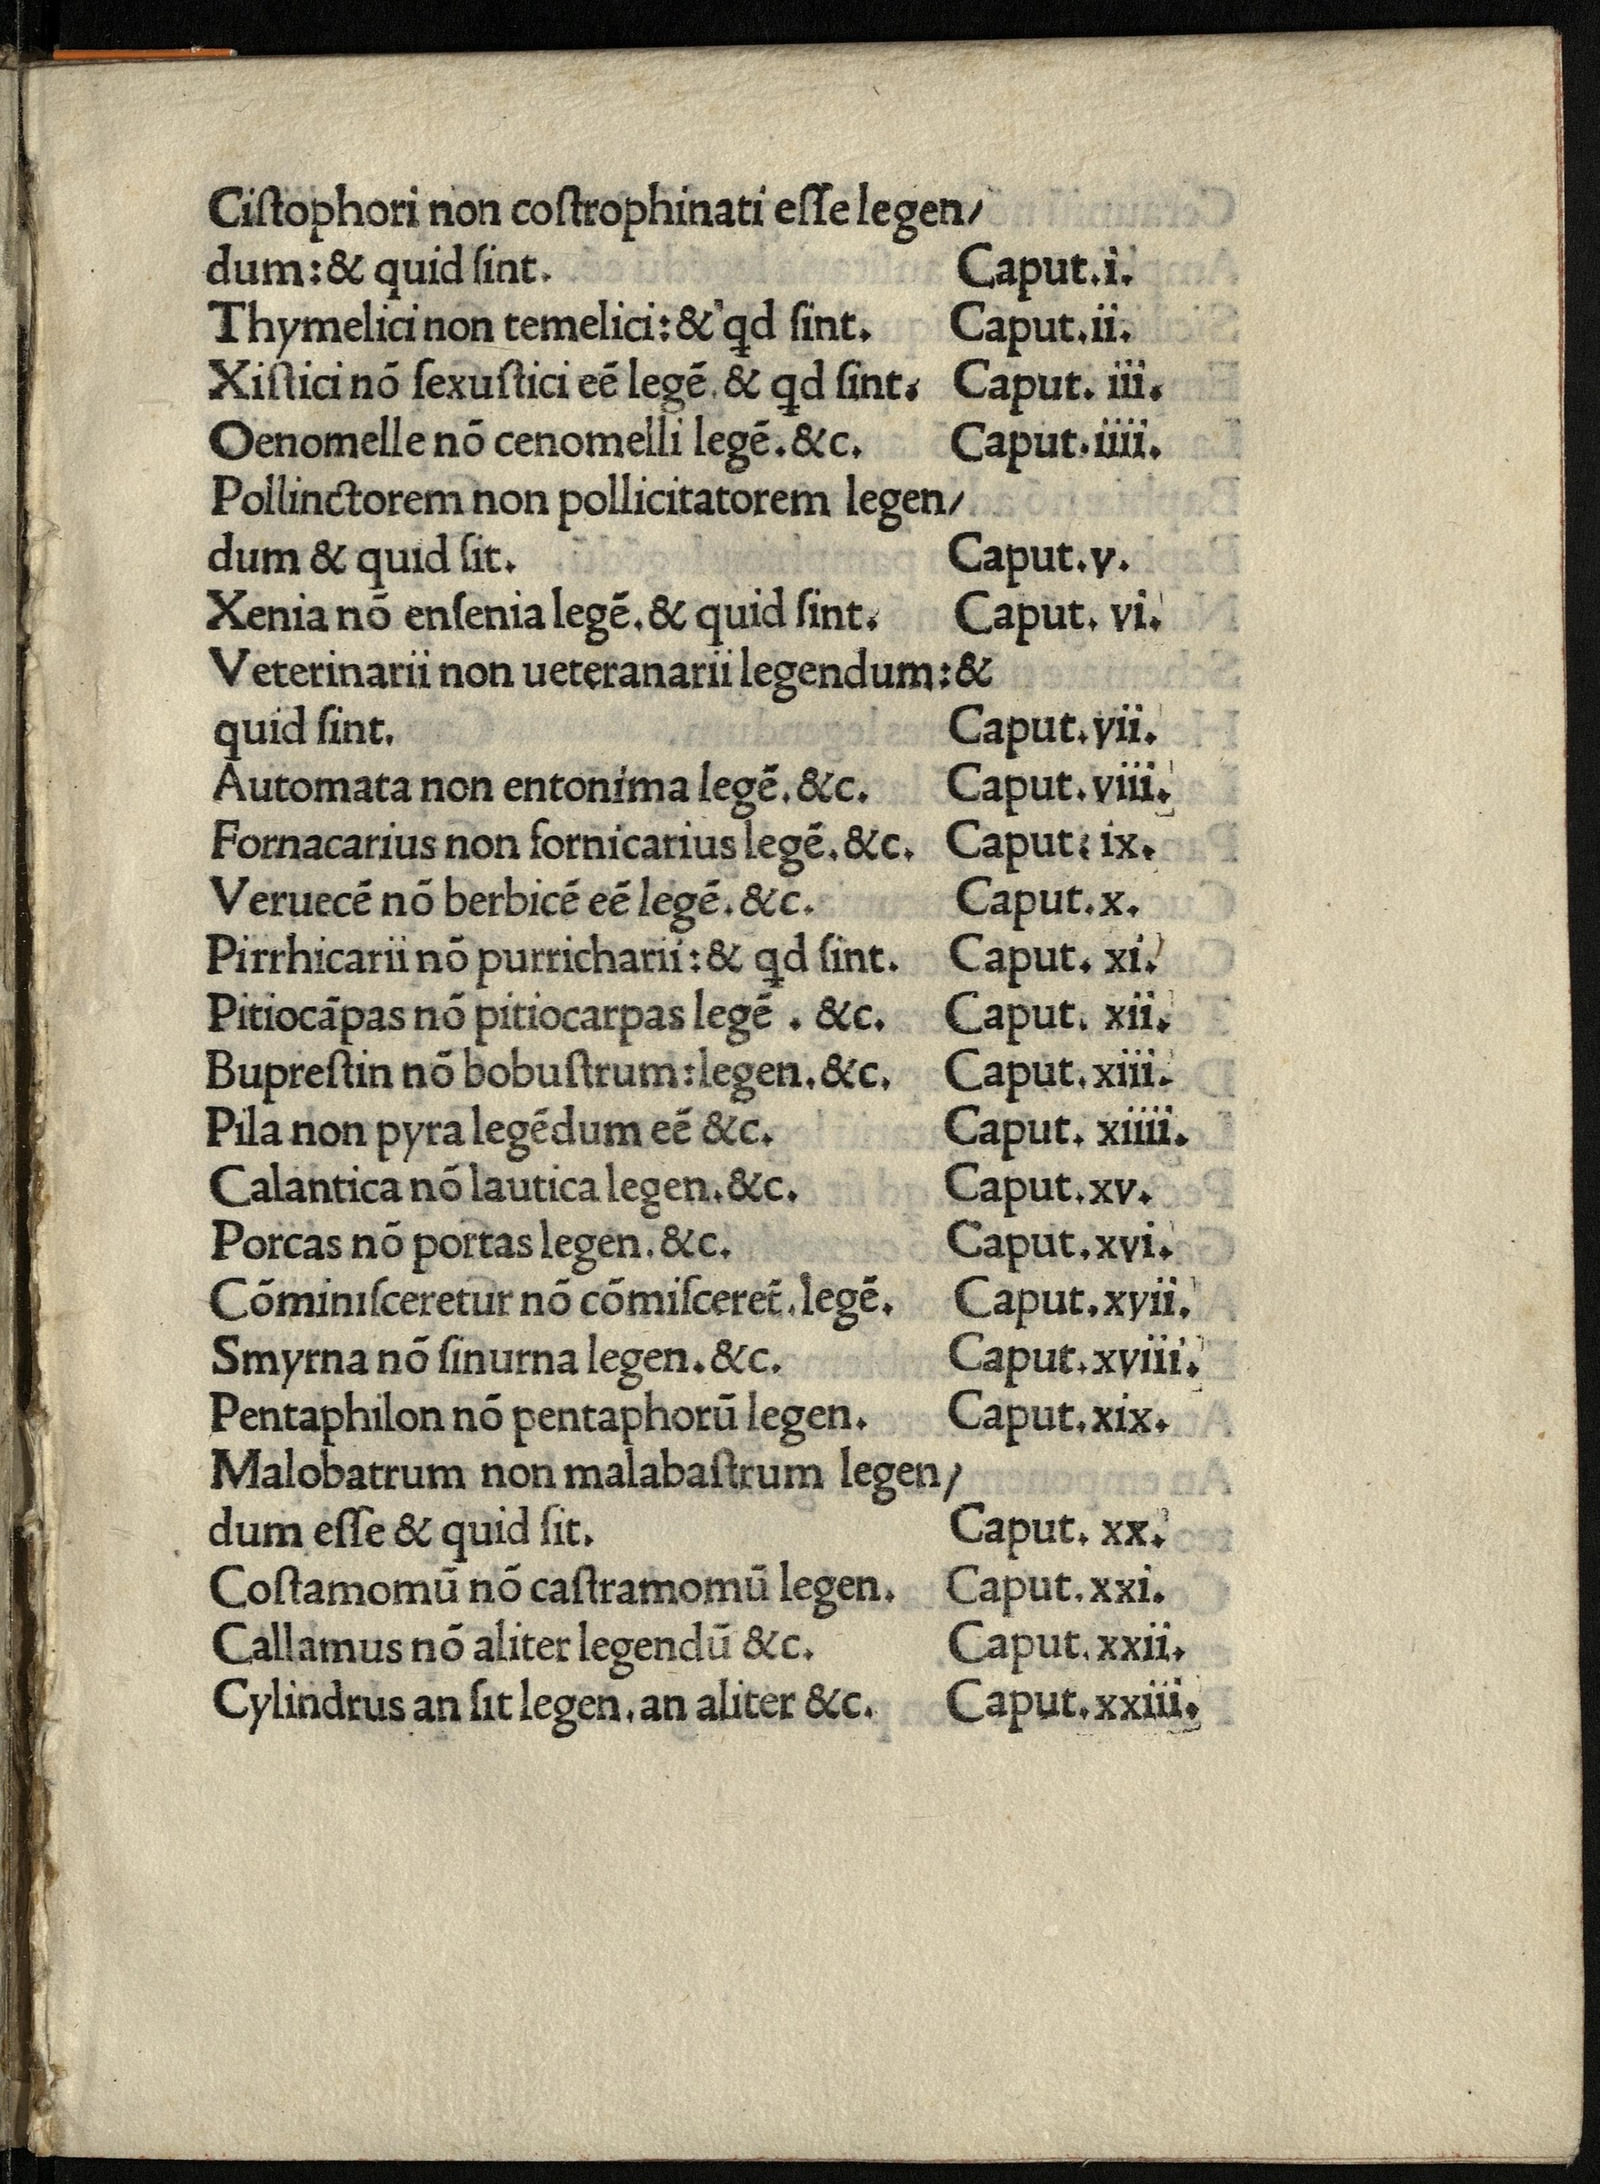 Ciſtophori non coſtrophinati eſſe legen/
dum: & quid ſint. Caput.i.
Thymelici non temelici: & qd ſint. Caput.ii.
Xiſtici nō ſexuſtici eē legē. & qd ſint. Caput. iii.
Oenomelle nō cenomelli legē. &c. Caput.iiii.
Pollinctorem non pollicitatorem legen/
dum & quid ſit. Caput.v.
Xenia nō enſenia legē. & quid ſint. Caput. vi.
Veterinarii non ueteranarii legendum: &
quid ſint. Caput.vii.
Automata non entonima legē. &c. Caput.viii.
Fornacarius non fornicarius legē. &c. Caput: ix.
Veruecē nō berbicē eē legē. &c. Caput.x.
Pirrhicarii nō purricharii: & qd ſint. Caput. xi.
Pitiocāpas nō pitiocarpas legē . &c. Caput. xii.
Bupreſtin nō bobuſtrum: legen. &c. Caput.xiii.
Pila non pyra legēdum eē &c. Caput. xiiii.
Calantica nō lautica legen. &c. Caput.xv.
Porcas nō portas legen. &c. Caput.xvi.
Cōminiſceretur nō cōmiſceret̄. legē. Caput.xvii.
Smyrna nō ſinurna legen. &c. Caput.xviii.
Pentaphilon nō pentaphorū legen. Caput.xix.
Malobatrum non malabaſtrum legen/
dum eſſe & quid ſit. Caput. xx.
Coſtamomū nō caſtramomū legen. Caput.xxi.
Callamus nō aliter legendū &c. Caput.xxii.
Cylindrus an ſit legen. an aliter &c. Caput.xxiii.